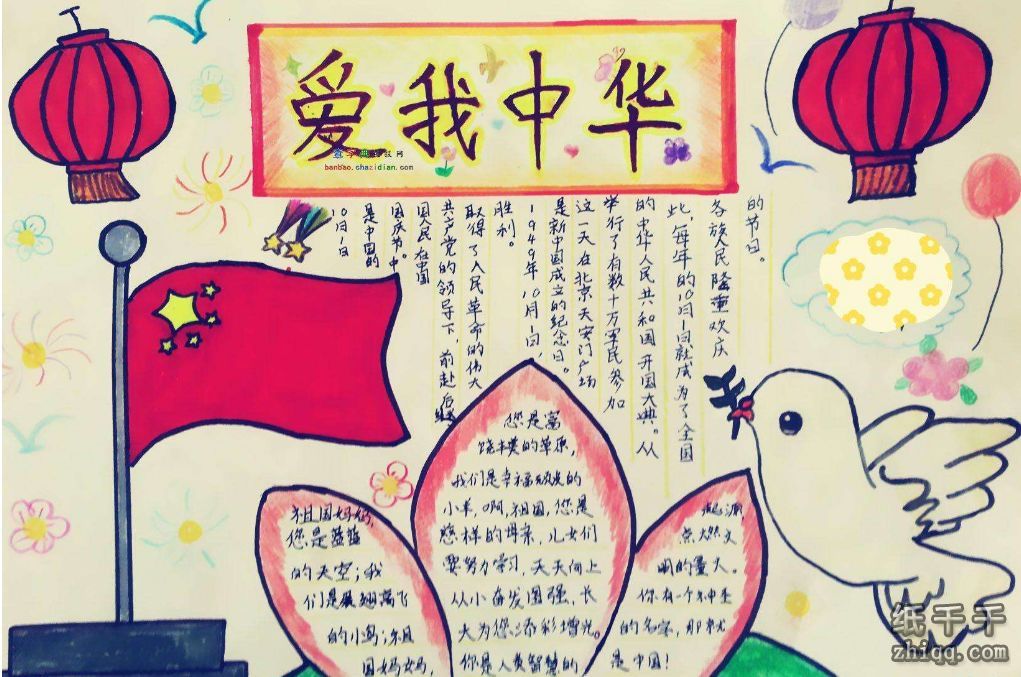 爱我中华
banbao.chazidian.com
10月1日
是中国的
国庆节。中
国人民在中国
共产党的领导下,前赴后继
取得了人民革命的伟大
胜利。
1949年10月1日,
是新中国成立的纪念日。
这一天在北京天安门广场
举行了有数十万军民参加
的中华人民共和国开国大典。从
此,每年的10月1日就成为了全国
各族人民隆重欢庆
的节日。
祖国妈妈,
您是蓝蓝
的天空;我
们是展翅高飞
的小鸟;祖
国妈妈,
您是富
饶丰美的草原,
我们是幸福的
小羊,啊,祖国,您是
慈样的母亲,儿女们
要努力学习,天天向上
从小奋发图强,长
大为您添彩增光。
你是人类智慧的
起源,
点燃文
明的星火。
你有一个神圣
的名字,那就
是中国!
纸千千
zhiqq.com